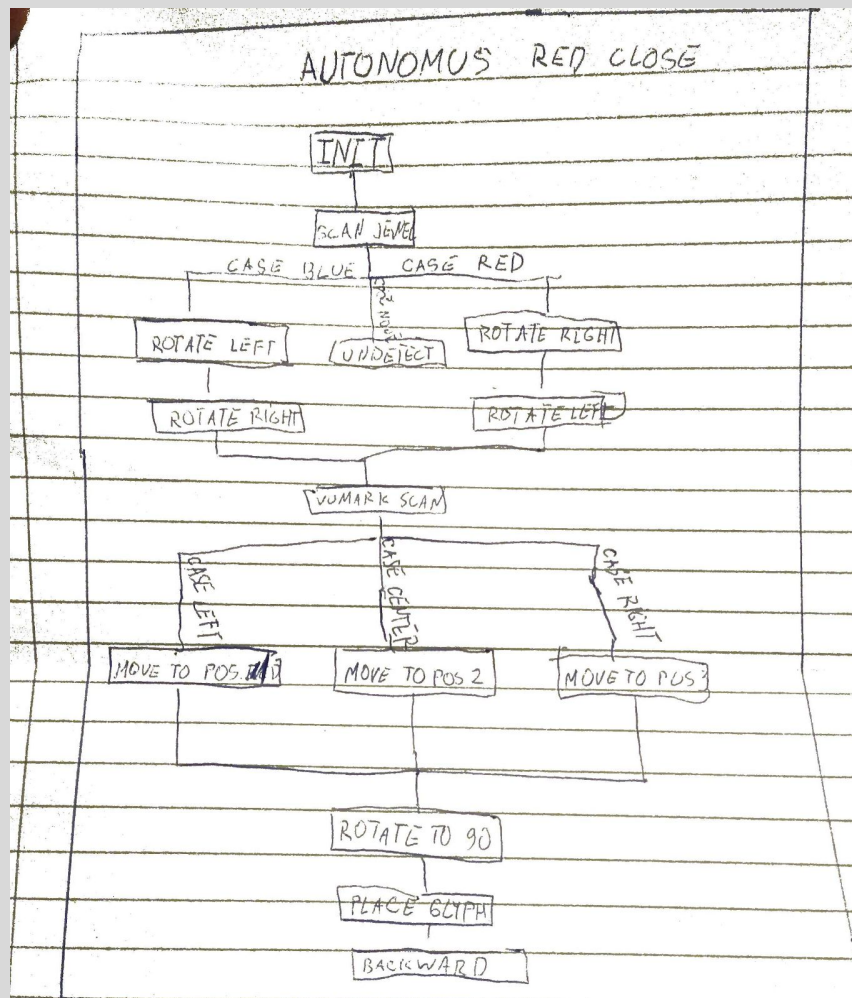 AUTONOMUS RED CLOSE
INIT
SCAN JEWEL
CASE BLUE CASE RED
ROTATE LEFT
UNDETECT
ROTATE RIGHT
ROTATE RIGHT
ROTATE LEFT
VUMARK SCAN
CASE LEFT
CASE CENTER
CASE RIGHT
MOVE TO POS.
MOVE TO POS 2
MOVE TO POS 3
ROTATE TO 90
PLACE GLYPH
BACKWARD